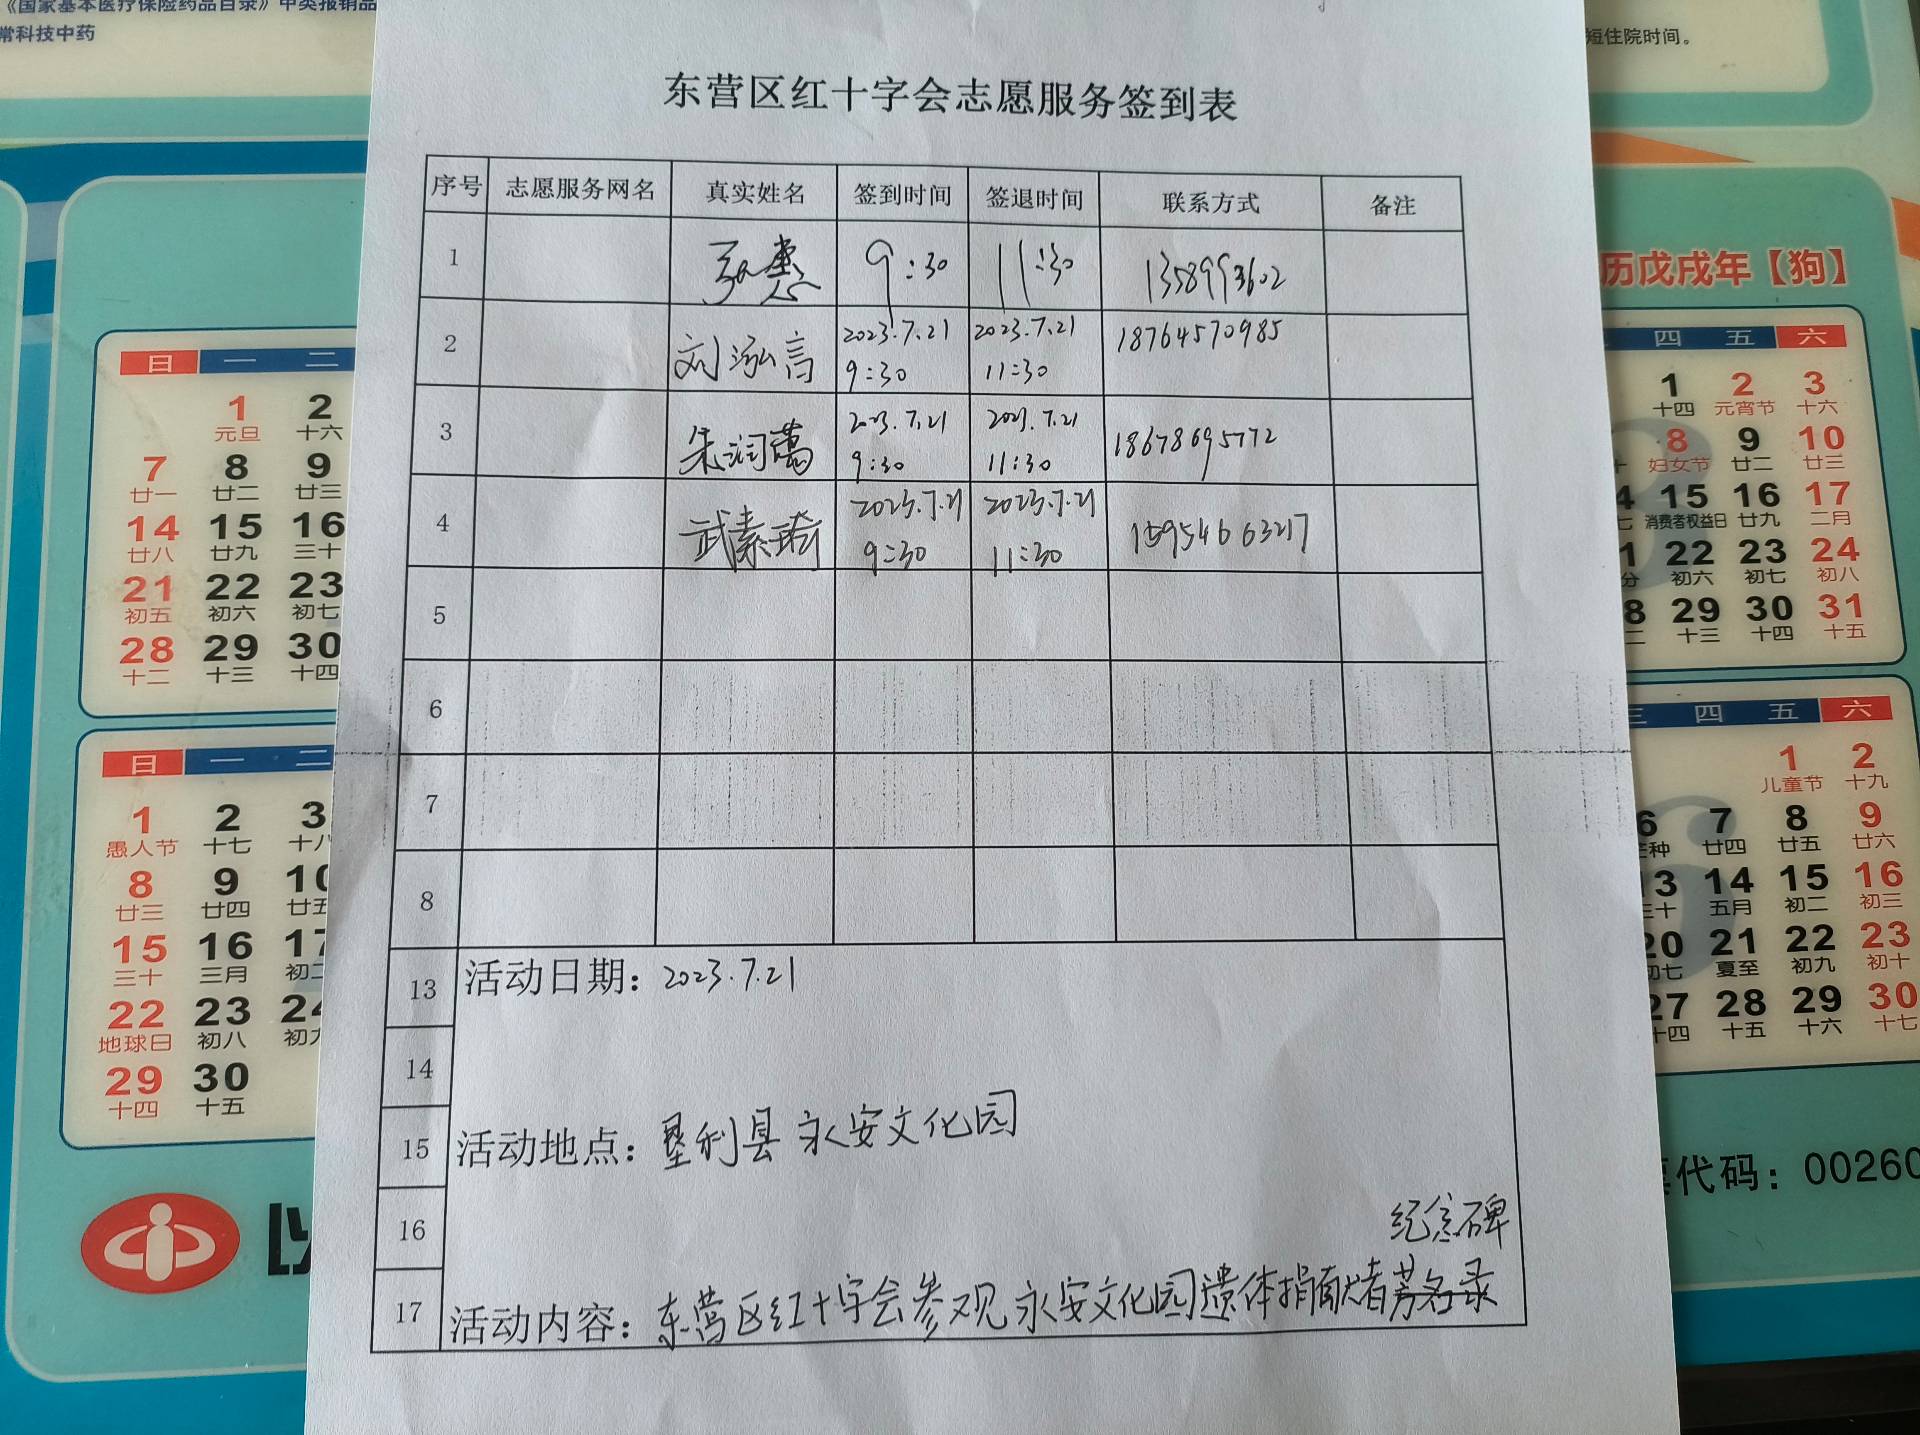 《国家基本医疗保险药品目录》甲类报销品
常科技中药
短住院时间。
东营区红十字会志愿服务签到表
序号 志愿服务网名 真实姓名 签到时间 签退时间 联系方式 备注
1 9:30 11:30
2 刘泓言 2023.7.21 2023.7.21 18764570985
9:30 11:30
3 朱润萬 2023.7.21 2023.7.21 18678695772
9:30 11:30
4 武素琦 2023.7.21 2023.7.21 15954663217
9:30 11:30
5
6
7
8
13 活动日期：2023.7.21
14
15 活动地点：垦利县永安文化园
16 纪念碑
17 活动内容：东营区红十字会参观永安文化园遗体捐献者芳名录
历戊戌年【狗】
日 一 二
1 2
元旦 十六
7 8 9
廿一 廿二 廿三
14 15 16
廿八 廿九 三十
21 22 23
初五 初六 初七
28 29 30
十二 十三 十四
日 一 二
1 2 3
愚人节 十七 十八
8 9 10
廿三 廿四 廿五
15 16 17
三十 三月 初二
22 23 24
地球日 初八 初九
29 30
十四 十五
四 五 六
1 2 3
十四 元宵节 十六
8 9 10
妇女节 廿二 廿三
15 16 17
消费者权益日 廿九 二月
22 23 24
初六 初七 初八
29 30 31
十三 十四 十五
三 四 五 六
1 2
儿童节 十九
6 7 8 9
芒种 廿四 廿五 廿六
13 14 15 16
三十 五月 初二 初三
20 21 22 23
初七 夏至 初九 初十
27 28 29 30
十四 十五 十六 十七
票代码：00260
以